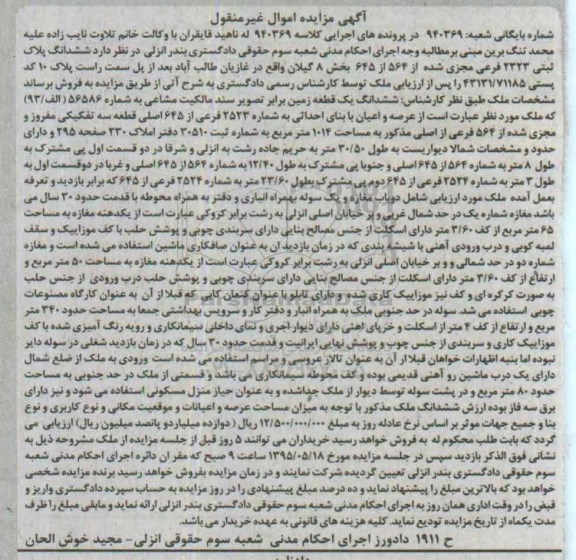 آگهی مزایده اموال غیرمنقول
شماره بایگانی شعبه: ۹۴۰۳۶۹ در پرونده های اجرایی کلاسه ۹۴۰۳۶۹ له ناهید قایقران با وکالت خانم تلاوت نایب زاده علیه
محمد تنگ برین مبنی برمطالبه وجه اجرای احکام مدنی شعبه سوم حقوقی دادگستری بندر انزلی در نظر دارد ششدانگ پلاک
ثبتی ۲۳۲۳ فرعی مجزی شده از ۵۶۴ از ۶۴۵ بخش ۸ گیلان واقع در غازیان طالب آباد بعد از پل سمت راست پلاک ۱۰ کد
پستی ۴۳۱۳۱/۷۱۱۸۵ را پس از ارزیابی ملک توسط کارشناس رسمی دادگستری به شرح آتی از طریق مزایده به فروش برساند
مشخصات ملک طبق نظر کارشناس: ششدانگ یک قطعه زمین برابر تصویر سند مالکیت مشاعی به شماره ۵۶۵۸۶ (الف/۹۳)
که ملک مورد نظر عبارت است از عرصه و اعیان با بنای احداثی به شماره ۲۵۲۳ فرعی از ۶۴۵ اصلی قطعه سه تفکیکی مفروز و
مجزی شده از ۵۶۴ فرعی از اصلی مذکور به مساحت ۱۰۱۴ متر مربع به شماره ثبت ۳۰۵۱۰ دفتر املاک ۲۳۰ صفحه ۲۹۵ و دارای
حدود و مشخصات شمالا دیواریست به طول ۳۰/۵۰ متر به حریم جاده رشت به انزلی و شرقا در دو قسمت اول پی مشترک به
طول ۸ متر به شماره ۵۶۴ از ۶۴۵ اصلی و جنوبا پی مشترک به طول ۱۲/۴۰ به شماره ۵۶۴ از ۶۴۵ اصلی و غربا در دوقسمت اول به
طول ۳ متر به شماره ۲۵۲۴ فرعی از ۶۴۵ دوم پی مشترک بطول ۲۳/۶۰ متر به شماره ۲۵۲۴ فرعی از ۶۴۵ که برابر بازدید و تعرفه
بعمل آمده ملک مورد ارزیابی شامل دوباب مغازه و یک سوله بهمراه انباری و دفتر به همراه محوطه با قدمت حدود ۳۰ سال می
باشد مغازه شماره یک در حد شمال غربی و بر خیابان اصلی انزلی به رشت برابر کروکی عبارت است از یکدهنه مغازه به مساحت
۶۵ متر مربع از کف ۳/۶۰ متر دارای اسکلت از جنس مصالح بنایی دارای سربندی چوبی و پوشش حلب با کف موزاییک و سقف
لمبه کوبی و درب ورودی آهنی با شیشه بندی که در زمان بازدید از آن به عنوان صافکاری ماشین استفاده می شده است و مغازه
شماره دو در حد شمالی و بر خیابان اصلی انزلی به رشت برابر کروکی عبارت است از یکدهنه مغازه به مساحت ۵۰ متر مربع و
ارتفاع از کف ۳/۶۰ متر دارای اسکلت از جنس مصالح بنایی دارای سربندی چوبی و پوشش حلب درب ورودی از جنس حلب
به صورت کرکره ای و کف نیز موزاییک کاری شده و دارای تابلو با عنوان گفمان کابین که قبلا از آن به عنوان کارگاه مصنوعات
چوبی استفاده می شد. سوله در حد جنوبی ملک به همراه انبار و دفتر کار و سرویس بهداشتی جمعا به مساحت حدود ۳۴۰ متر
مربع و ارتفاع از کف ۴ متر از اسکلت و خرپای آهنی دارای دیوار آجری و نمای داخلی سیمانکاری و رویه رنگ آمیزی شده با کف
موزاییک کاری و سربندی از جنس چوب و پوشش نهایی ایرانیت و قدمت حدود ۳۰ سال که در زمان بازدید شغلی در سوله دایر
نبوده اما بنبه اظهارات خواهان قبلا از آن به عنوان تالار عروسی و مراسم استفاده می شده است ورودی به ملک از ضلع شمال
دارای یک درب ماشین رو آهنی قدیمی بوده و کف محوطه سیمانکاری می باشد و قسمتی از ملک در حد جنوبی به مساحت
حدود ۸۰ متر مربع و در پشت سوله توسط دیوار از ملک جداشده و به عنوان حیاز منزل مسکونی استفاده می شود و نیز دارای
برق سه فاز بوده ارزش ششدانگ ملک مذکور با توجه به میزان مساحت عرصه و اعیانات و موقعیت مکانی و نوع کاربری و نوع
بنا و جمیع جهات موثر بر اساس نرخ عادله روز به مبلغ ۱۲/۵۰۰/۰۰۰/۰۰۰ ریال (دوازده میلیاردو پانصد میلیون ریال) ارزیابی می
گردد که بابت طلب محکوم له به فروش خواهد رسید خریداران می توانند ۵ روز قبل از جلسه مزایده از ملک مشروحه ذیل به
نشانی فوق الذکر بازدید سپس در جلسه مزایده مورخ ۱۳۹۵/۰۵/۱۸ ساعت ۹ صبح که مقر آن دائره اجرای احکام مدنی شعبه
سوم حقوقی دادگستری بندر انزلی تعیین گردیده شرکت نمایند و در زمان مزایده بفروش خواهد رسید برنده مزایده شخصی
خواهد بود که بالاترین مبلغ را پیشنهاد نماید و ده درصد مبلغ پیشنهادی را در روز مزایده به حساب سپرده دادگستری واریز و
قبض را در وقت اداری همان روز به اجرای احکام مدنی شعبه سوم حقوقی دادگستری بندر انزلی ارائه نماید و مابقی مبلغ را ظرف
مدت یکماه از تاریخ مزایده تودیع نماید. کلیه هزینه های قانونی به عهده خریدار می باشد.
ح ۱۹۱۱ دادورز اجرای احکام مدنی شعبه سوم حقوقی انزلی- مجید خوش الحان